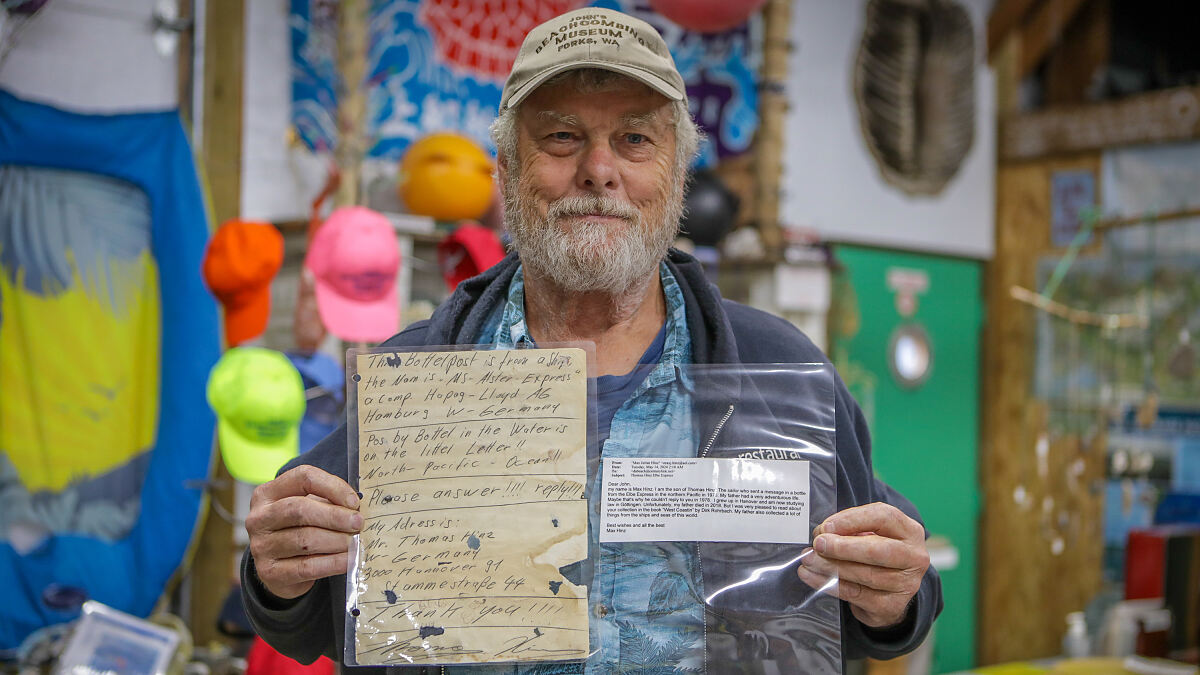 JOHN'S
BEACHCOMBING
MUSEUM
FORKS, WA
This Bottelpost is from a Ship,
the Nam is - MS - Alster - Express"
a comp. Hapag - Lloyd AG
Hamburg W - Germany
Pos. by Bottel in the Water is
on the littel Letter!!
North - Pacific - Ocean!!
Please answer!!!! reply!!!
My Adress is:
Mr. Thomas Hinz
W - Germany
3000 Hannover 91
Stammestraße 44
Thank you!!!!
Thomas Hinz
restaurant
From: "Max Julian Hinz"
Date: Tuesday, May 14, 2024 2:18 AM
To:
Subject: Thomas Hinz Elbe Express
Dear John,
my name is Max Hinz. I am the son of Thomas Hinz. The sailor who sent a message in a bottle
from the Elbe Express in the northern Pacific in 197. My father had a very adventurous life.
Maybe that's why he couldn't reply to you in 1978. I grew up in Hanover and am now studying
law in Göttingen. Unfortunately, my father died in 2019. But I was very pleased to read about
your collection in the book "West Coastin" by Dirk Rohrbach. My father also collected a lot of
things from the ships and seas of this world.
Best wishes and all the best
Max Hinz